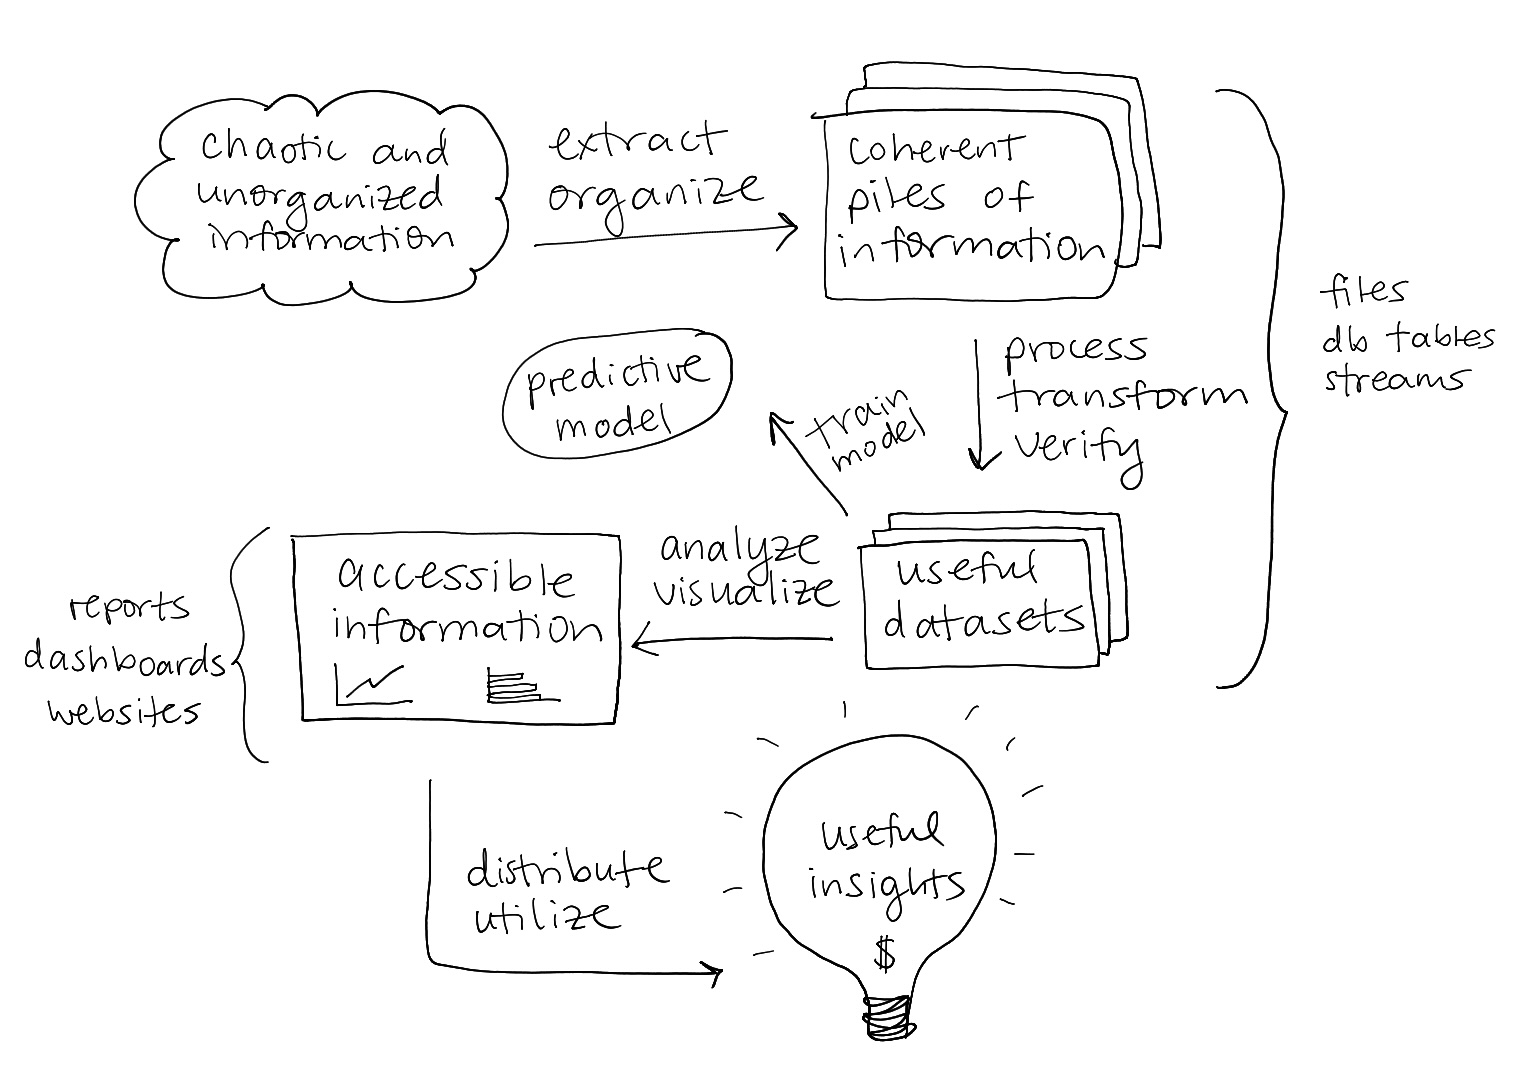 chaotic and
unorganized
information
extract
organize
coherent
piles of
information
files
db tables
streams
process
transform
verify
predictive
model
train
model
useful
datasets
analyze
visualize
accessible
information
reports
dashboards
websites
distribute
utilize
useful
insights
$